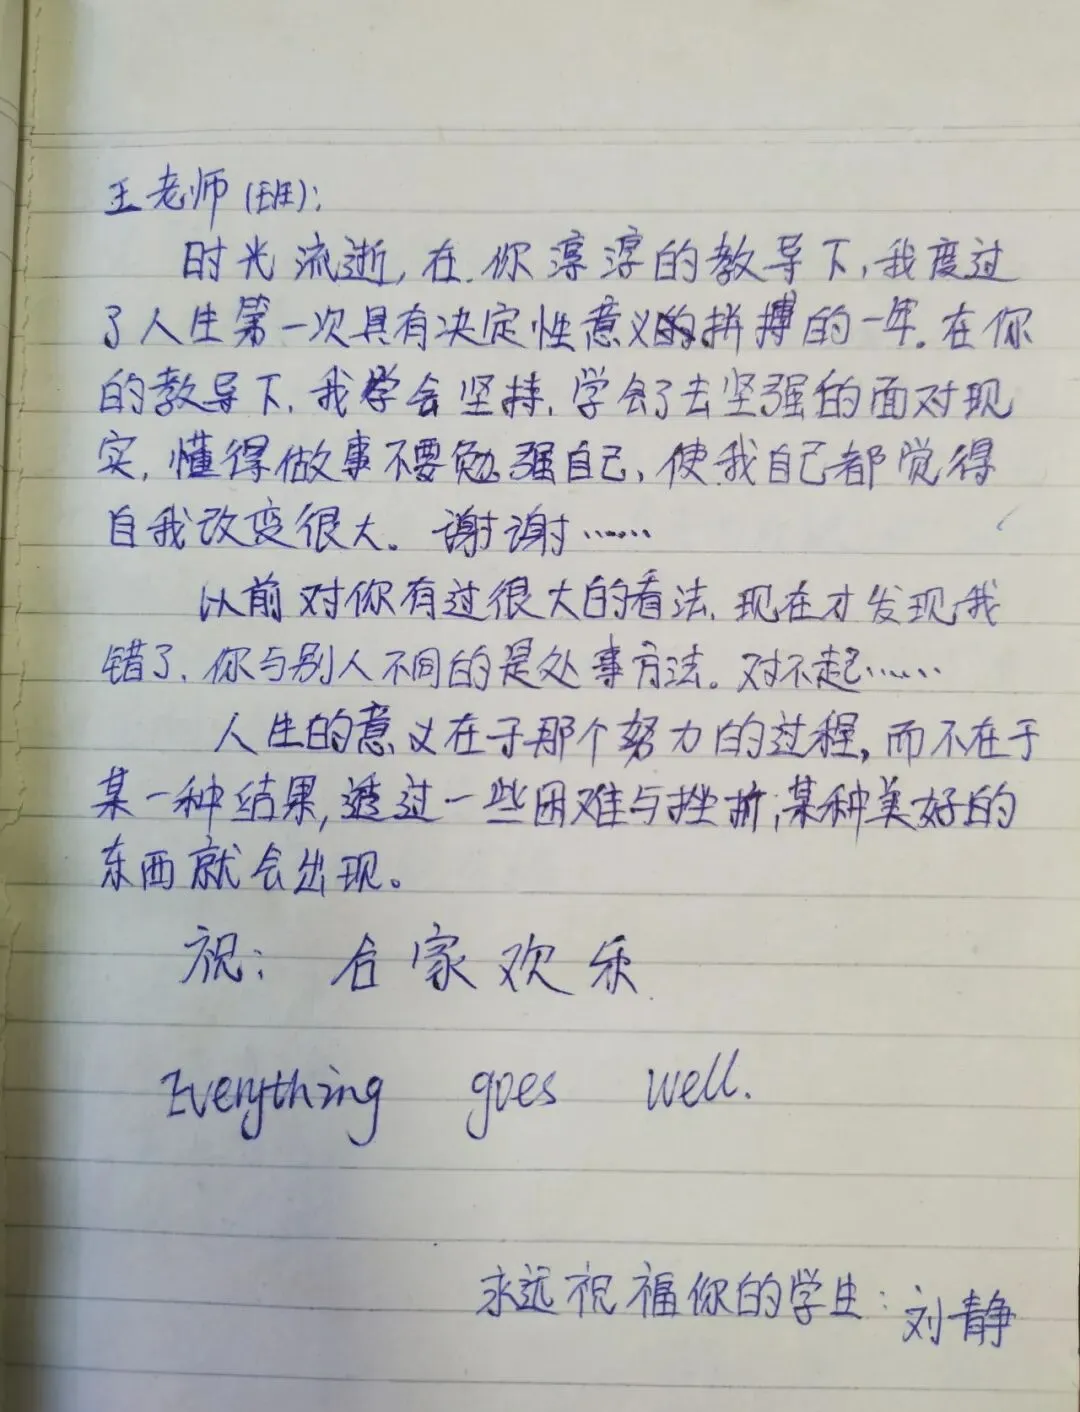 王老师(班):
时光流逝,在你淳淳的教导下,我度过
了人生第一次具有决定性意义的拼搏的一年。在你
的教导下,我学会坚持,学会了去坚强的面对现
实,懂得做事不要勉强自己,使我自己都觉得
自我改变很大。谢谢……
以前对你有过很大的看法,现在才发现,我
错了,你与别人不同的是处事方法。对不起……
人生的意义在于那个努力的过程,而不在于
某一种结果,透过一些困难与挫折,某种美好的
东西就会出现。
祝: 合家欢乐
Everything goes well.
永远祝福你的学生:刘静